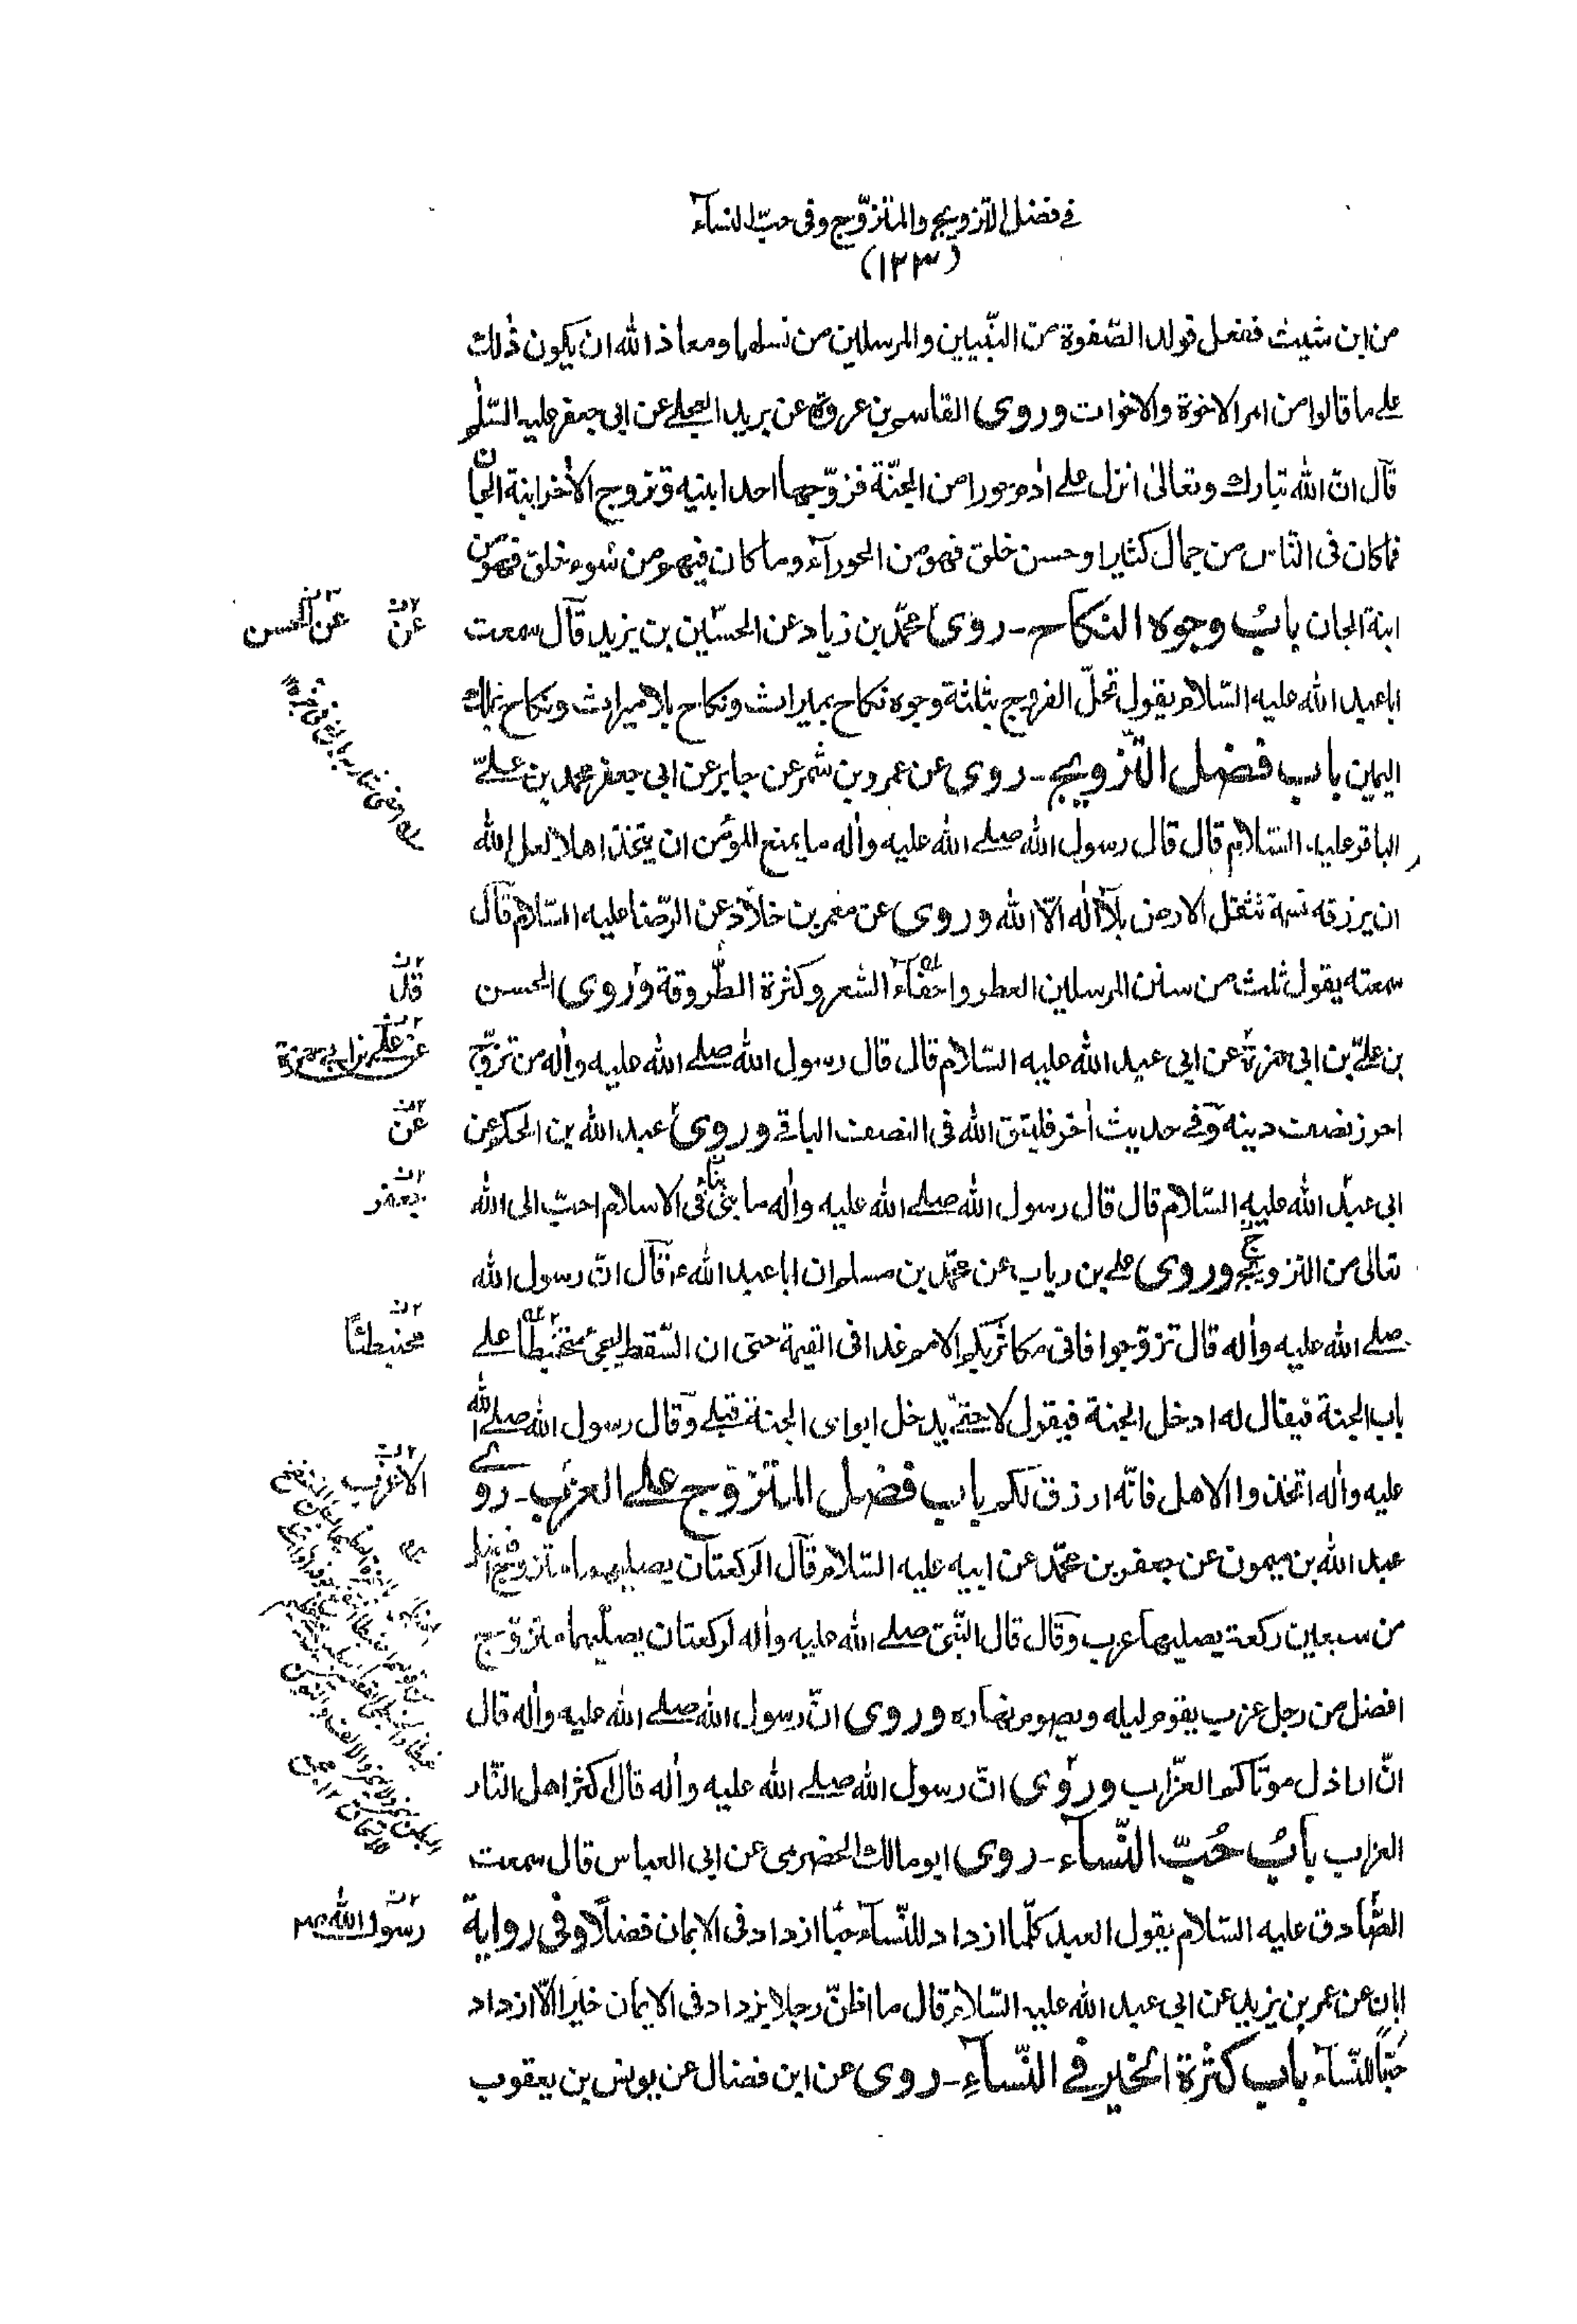 في فضل التزويج والمتزوّج وفى حبّ النسآء
(١٢٣)
من ابن شيث ففعل فولد الصّفوة من النّبيين والمرسلين من نسلهما ومعاذ الله ان يكون ذٰلك
على ما قالوا من امر الاخوة والاخوات وروى القاسم بن عروة عن بريد العجلى عن ابى جعفر عليه السّلٰم
قآل انّ الله تبارك وتعالىٰ انزل على اٰدم حورا من الجنّة فزوّجها احد ابنيه وتزوج الاٰخر ابنة الجانّ
فما كان فى النّاس من جمال كثير او حسن خلق فهو من الحورآء وما كان فيهم من سوء خلق فهو من
ابنة الجان بابُ وجوه النكاح ـ روى محمّد بن زياد عن الحسين بن يزيد قآل سمعت
عن
عن الحسن
ابا عبد الله عليه السّلام يقول تحلّ الفروج بثلثة وجوه نكاح بميراث ونكاح بلا ميراث ونكاح بملك
اليمين باب فضل التّزويج ـ روى عن عمرو بن شمر عن جابر عن ابى جعفر محمد بن علىّ
الباقر عليه السّلام قال قال رسول الله صلى الله عليه واٰله ما يمنع المؤمن ان يتّخذ اهلا لعل الله
ان يرزقه نسمة تثقل الارض بلآ اله الّا الله وروى عن معمر بن خلّاد عن الرّضا عليه السّلام قآل
سمعته يقول ثلث من سنن المرسلين العطر واحفآء الشعر وكثرة الطّروقة وروى الحسن
قال
بن علىّ بن ابى حمزة عن ابى عبد الله عليه السّلام قال قال رسول الله صلى الله عليه واٰله من تزوّج
عن على بن ابى حمزة
احرز نصف دينه وفى حديث اٰخر فليتق الله فى النصف الباقى وروى عبد الله بن الحكم عن
عن
ابى عبد الله عليه السّلام قال قال رسول الله صلى الله عليه واٰله ما بنى بناء فى الاسلام احبّ الى الله
جعفر
تعالى من التزويج وروى على بن رياب عن محمّد بن مسلم ان ابا عبد الله ع قآل انّ رسول الله
صلى الله عليه واٰله قال تزوّجوا فانى مكاثر بكم الامم غدا فى القيٰمة حتى ان السّقط ليجئ محبنطئا على
محبنطئاً
باب الجنة فيقال له ادخل الجنة فيقول لا حتى يدخل ابواى الجنة قبلى وقال رسول الله صلى الله
عليه واٰله اتخذوا الاهل فانّه ارزق لكم باب فضل المتزوّج على العزب ـ روى
الاعزب
عبد الله بن ميمون عن جعفر بن محمّد عن ابيه عليه السّلام قآل الركعتان يصليهما متزوّج افضل
من سبعين ركعة يصليها عزب وقآل قال النّبىّ صلى الله عليه واٰله لركعتان يصلّيهما متزوّج
افضل من رجل عزب يقوم ليله ويصوم نهاره وروى انّ رسول الله صلى الله عليه واٰله قال
انّ اراذل موتاكم العزّاب وروى انّ رسول الله صلى الله عليه واٰله قال اكثر اهل النّار
العزاب بابُ حُبّ النّسآء ـ روى ابو مالك الحضرمى عن ابى العباس قال سمعت
الصّادق عليه السّلام يقول العبد كلّما ازداد للنّسآء حبّا ازداد فى الايمان فضلًا وفى رواية
رسول الله
ابان عن عمر بن يزيد عن ابى عبد الله عليه السّلام قال ما اظنّ رجلا يزداد فى الايمان خيرا الّا ازداد
حُبّا للنّسآء باب كثرة الخير فى النّسآءِ ـ روى عن ابن فضال عن يونس بن يعقوب